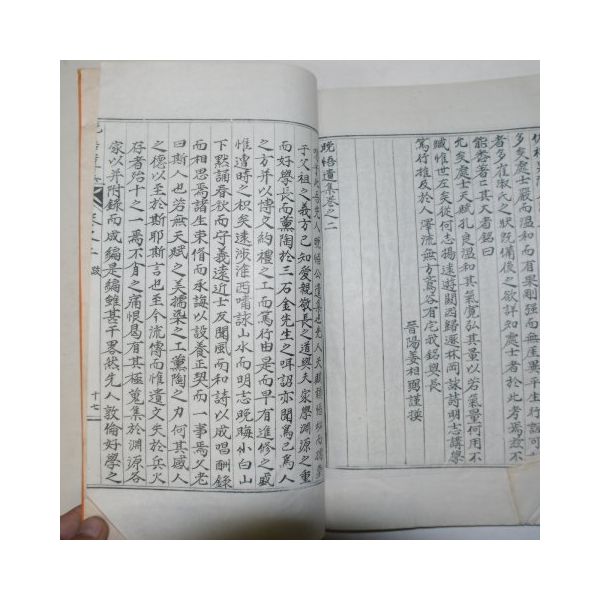 多矣處士嚴而溫和而有果剛强而無崖異平生行誼可
者多崔淑氏之狀旣備後之欲詳知處士者於此考焉玆不
能盡著只其大者銘曰
允矣處士天賦孔良溫和其氣寬弘其量以若氣量何用不
臧時哉世左矣從何志揚遠遊關西歸返林岡詠詩明志講學
篤行推及於人澤流無方蔿谷有宅我銘與長
晉陽姜相熙謹撰
晩悟遺集卷之二
子父祖之義方已知愛親敬長之道與夫家學淵源之重
而好學長而薰陶於三石金先生之咡詔亦聞爲己爲人
之方幷以博文約禮之工而篤行由是而早有進修之晟
惟違時之枳矣遠涉淮西嘯詠山水而明志晩悔小白山
下黙誦春秋而守義遠近士友聞風而和詩以成唱酬錄
而相思焉諸生束脩而永誨以設養正契而一事焉父老
曰斯人也若無天賦之美擩染之工薰陶之力何其感人
之德以至於斯耶斯言也至今流傳而惟遺文失於兵火
存者殆十之一焉不肖之痛恨曷有其極蒐集於淵源各
家以幷附錄而成編是編雖甚千畧然先人敦倫好學之
跋
十七